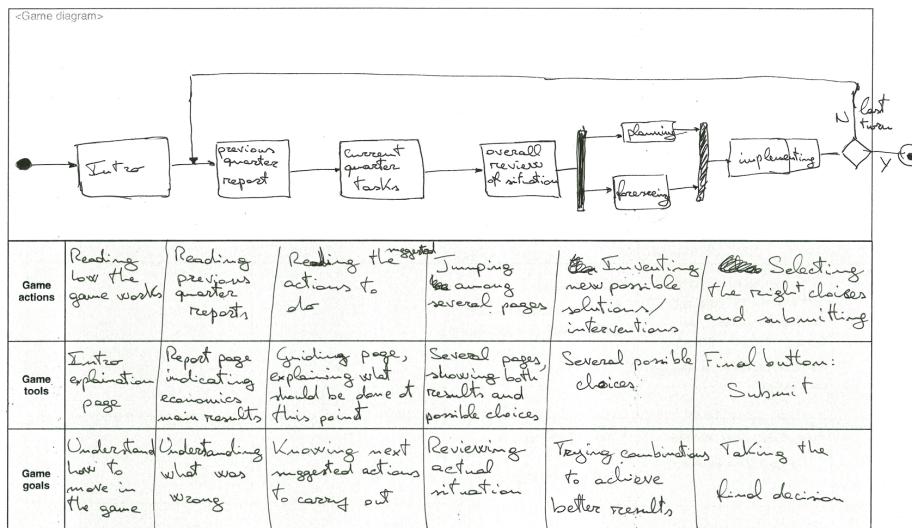 <Game diagram>
Intro
previous
quarter
report
current
quarter
tasks
overall
review
of situation
planning
foreseeing
implementing
N
last
turn
Y
Game
actions
Reading
how the
game works
Reading
previous
quarter
reports
Reading the suggested
actions to
do
Jumping
among
several pages
Inventing
new possible
solutions/
interventions
Selecting
the right choices
and submitting
Game
tools
Intro
explaination
page
Report page
indicating
economics
main results
Guiding page,
explaining what
should be done at
this point
Several pages,
showing both
results and
possible choices
Several possible
choices
Final button:
Submit
Game
goals
Understand
how to
move in
the game
Understanding
what was
wrong
Knowing next
suggested actions
to carry out
Reviewing
actual
situation
Trying combinations
to achieve
better results
Taking the
final decision